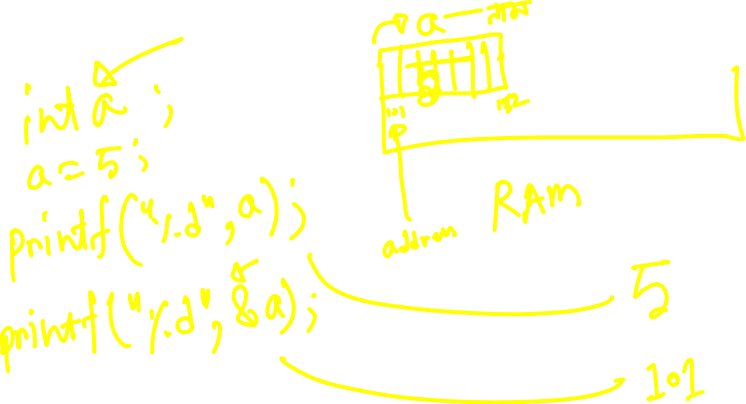 int a;
a = 5;
printf("%d", a);
printf("%d", &a);
a — নাম
5
132
address
RAM
5
101